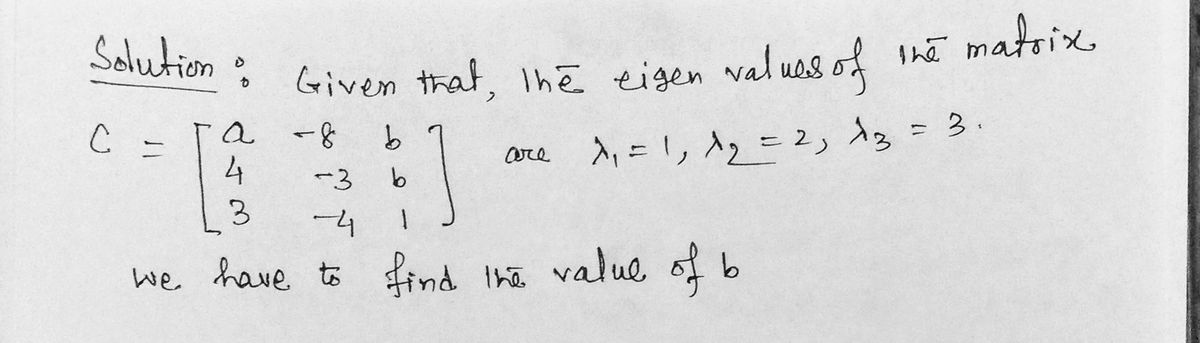 Solution : Given that, the eigen values of the matrix
C = [ a -8 b
4 -3 b
3 -4 1 ] are λ₁ = 1, λ₂ = 2, λ₃ = 3.
we have to find the value of b